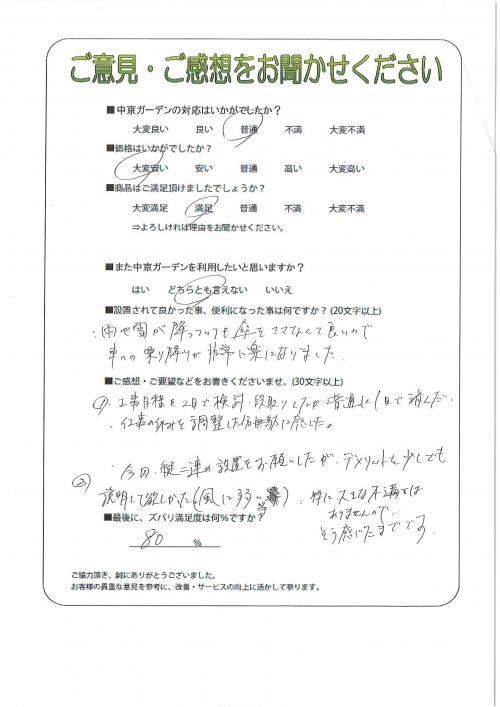 ご意見・ご感想をお聞かせください
■中京ガーデンの対応はいかがでしたか?
大変良い 良い 普通 不満 大変不満
■価格はいかがでしたか?
大変安い 安い 普通 高い 大変高い
■商品はご満足頂けましたでしょうか?
大変満足 満足 普通 不満 大変不満
⇒よろしければ理由をお聞かせください。
■また中京ガーデンを利用したいと思いますか?
はい どちらとも言えない いいえ
■設置されて良かった事、便利になった事は何ですか?(20文字以上)
・雨や雪が降っていても傘をささなくて良いので
車への乗り降りが非常に楽になりました.
■ご感想・ご要望などをお書きくださいませ。(30文字以上)
①・工事日程を2日で検討・段取りしたが普通に1日で済んだ.
・仕事の休みを調整した分無駄に感じた。
②・今回、縦二連の設置をお願いしたが、デメリットを少しでも
説明して欲しかった(風に弱い等)、特に大きな不満では
ありませんので、
そう感じたまでです.
■最後に、ズバリ満足度は何%ですか?
80 %
ご協力頂き、誠にありがとうございました。
お客様の貴重な意見を参考に、改善・サービスの向上に活かして参ります。